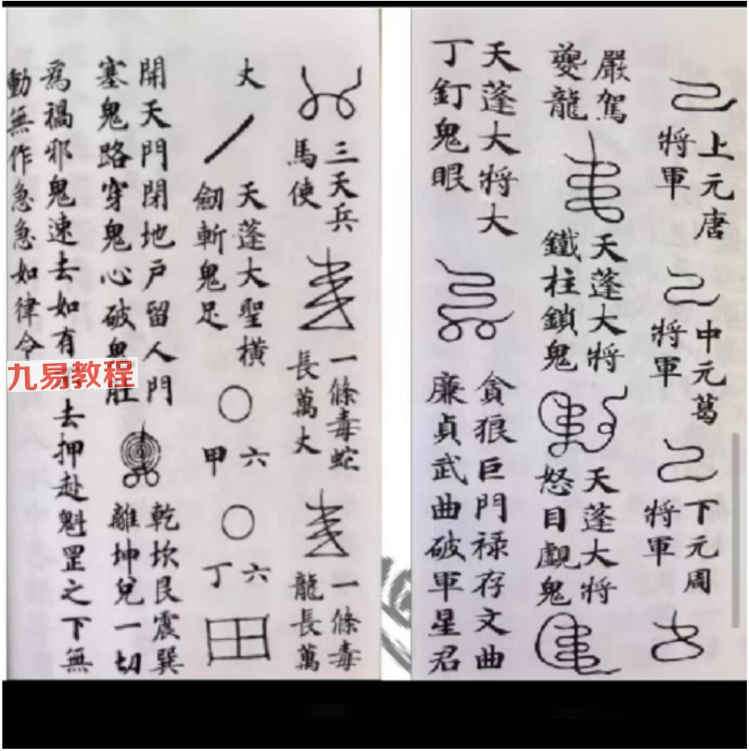 上元唐
將軍
中元葛
將軍
下元周
將軍
嚴駕
夔龍
天蓬大將
鐵柱鎖鬼
天蓬大將
怒目覷鬼
天蓬大將大
丁釘鬼眼
貪狼巨門禄存文曲
廉貞武曲破軍星君
三天兵
馬使
一條毒蛇
長萬丈
一條毒
龍長萬
丈
天蓬大聖橫
劒斬鬼足
六
甲
六
丁
開天門閉地户留人門
塞鬼路穿鬼心破鬼
乾坎艮震巽
離坤兌一切
爲禍邪鬼速去如有去押赴魁罡之下無
動無作急急如律令
九易教程